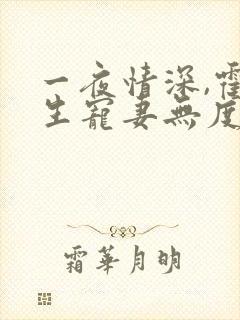 一夜情深,霍
生寵妻無度
霜華月明